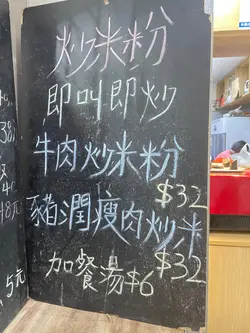 炒米粉
即叫即炒
牛肉炒米粉
$32
豬潤瘦肉炒米
$32
加餐湯$6
38
4
48元
5元